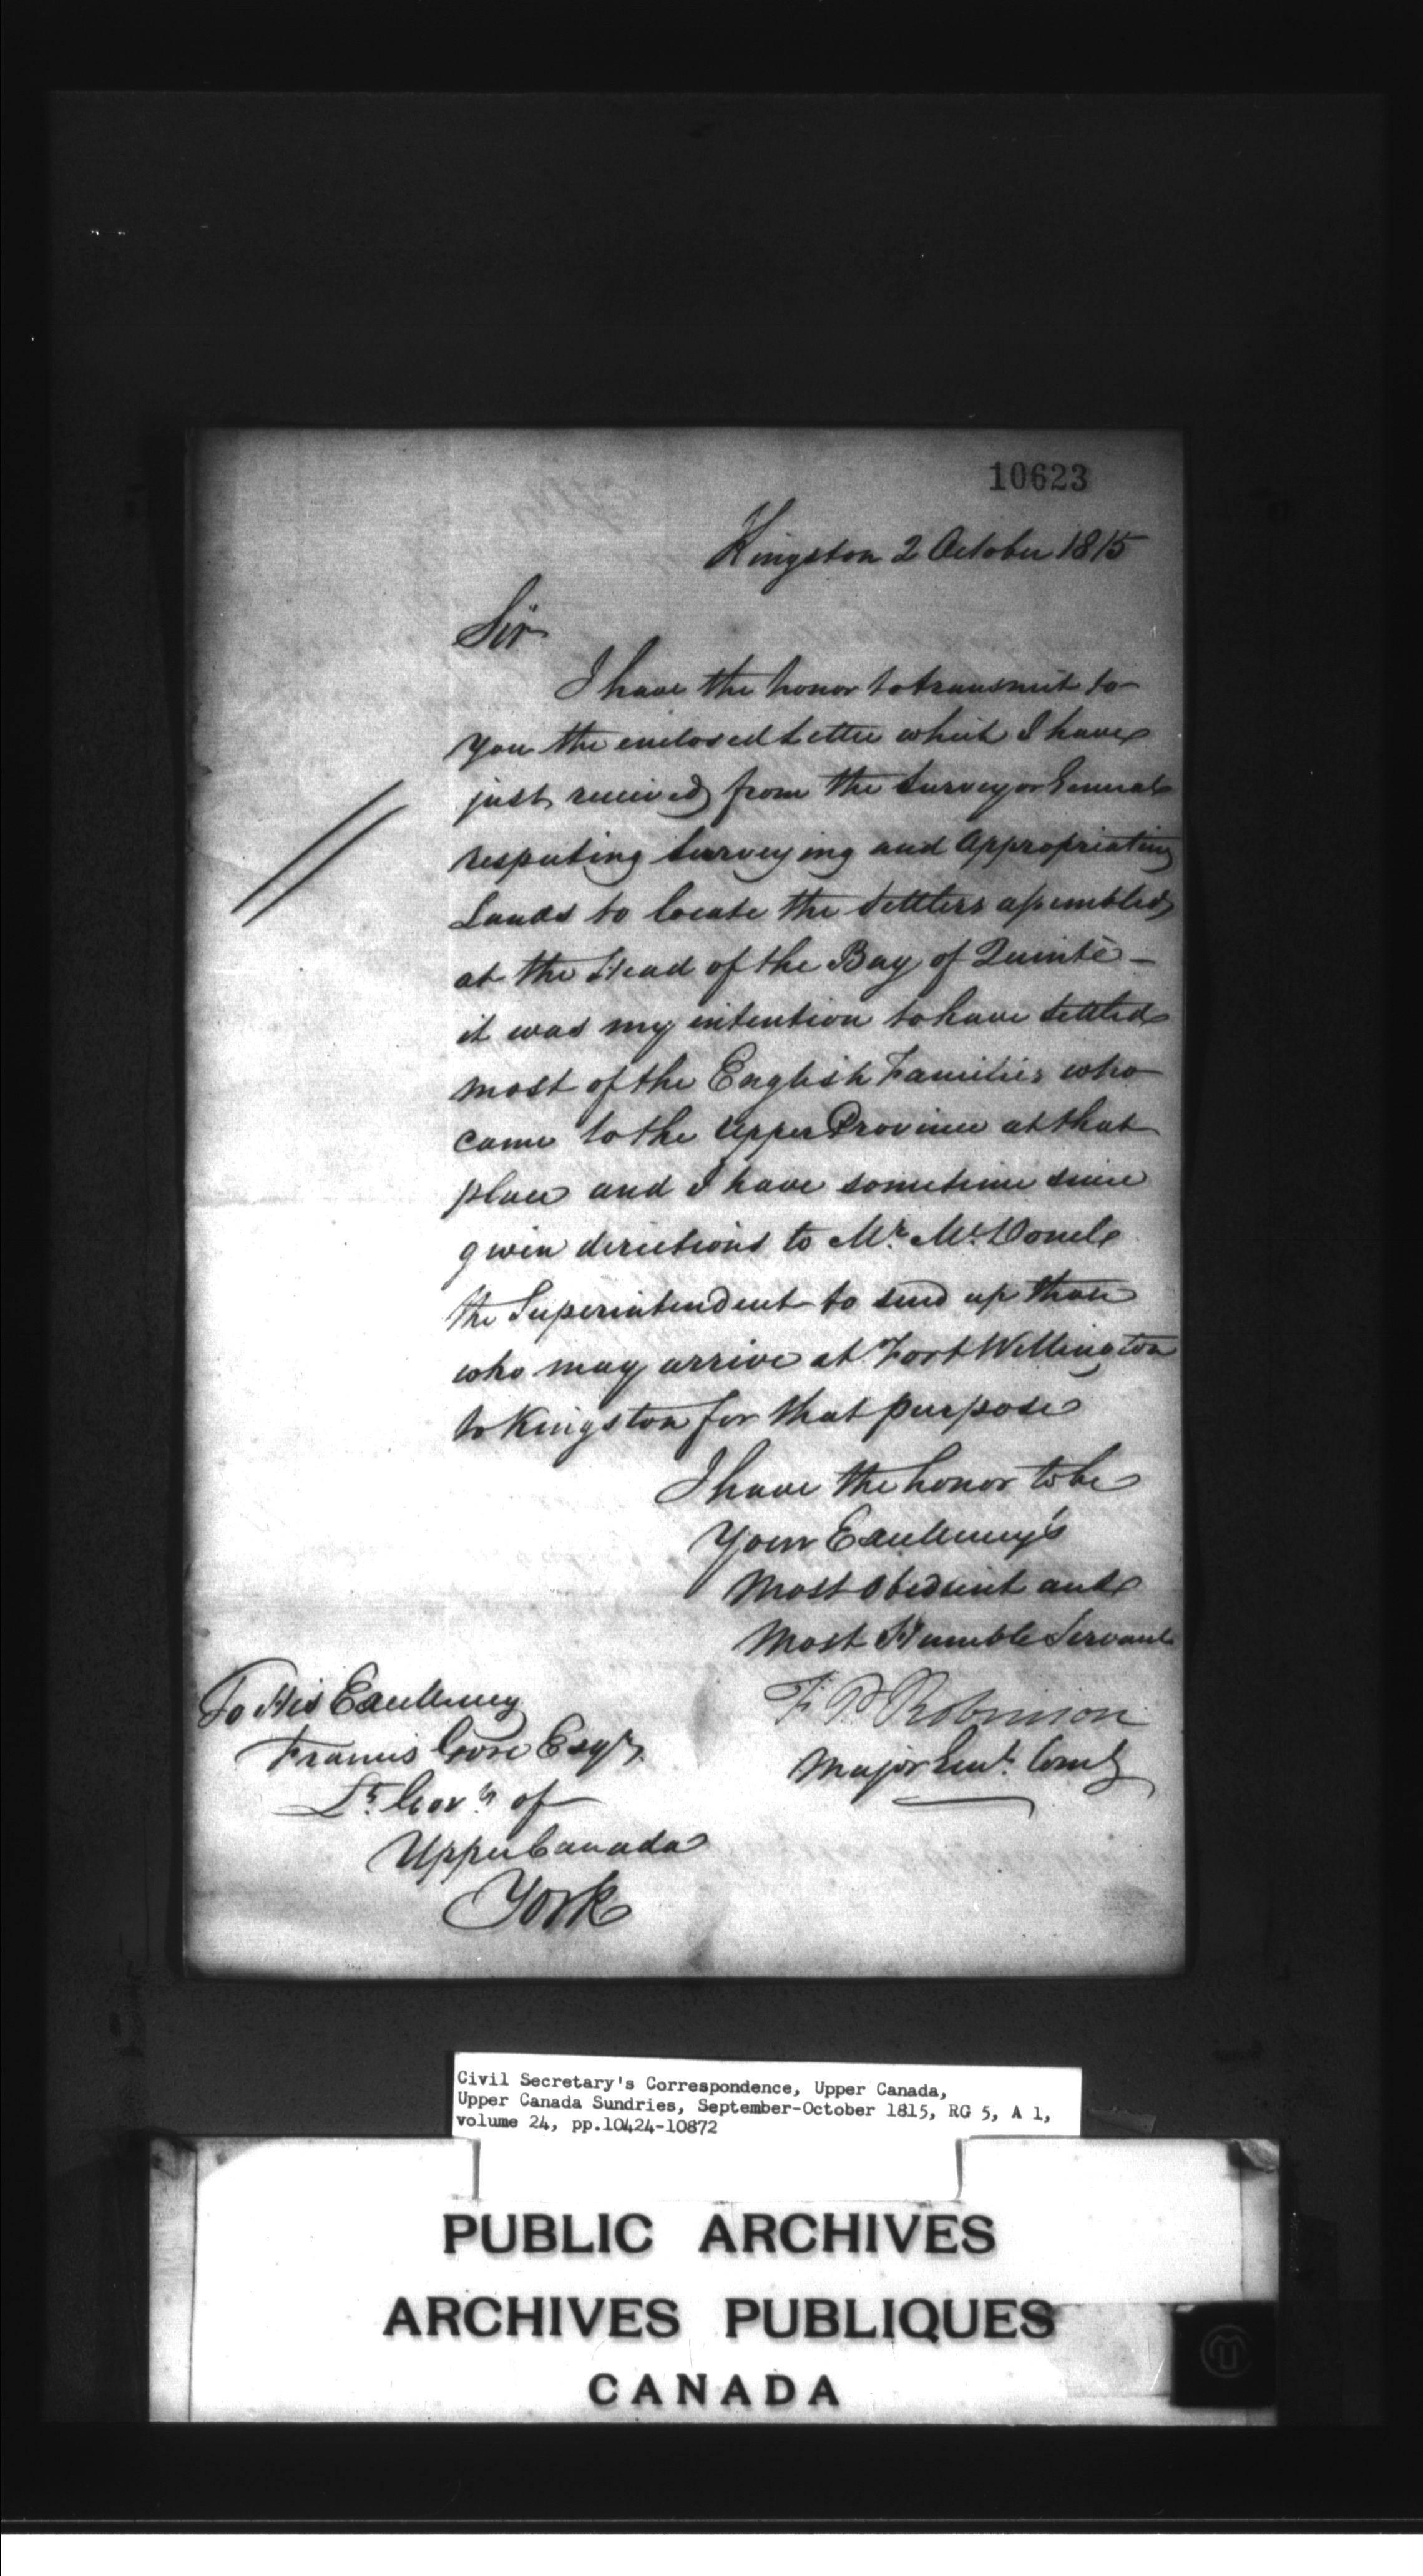 10623
Kingston 2 October 1815
Sir
I have the honor to transmit to
you the enclosed Letter which I have
just received from the Surveyor General
respecting Surveying and Appropriating
Lands to locate the Settlers assembled
at the Head of the Bay of Quinté —
it was my intention to have settled
most of the English Families who
came to the Upper Province at that
place and I have sometime since
given directions to Mr. McDonel
the Superintendent to send up those
who may arrive at Fort Wellington
to Kingston for that purpose
I have the honor to be
Your Excellency's
Most Obedient and
Most Humble Servant
F. P. Robinson
Major Genl. Comg
To His Excellency
Francis Gore Esqr.
Lt. Govr. of
Upper Canada
York
Civil Secretary's Correspondence, Upper Canada,
Upper Canada Sundries, September-October 1815, RG 5, A 1,
volume 24, pp.10424-10872
PUBLIC ARCHIVES
ARCHIVES PUBLIQUES
CANADA